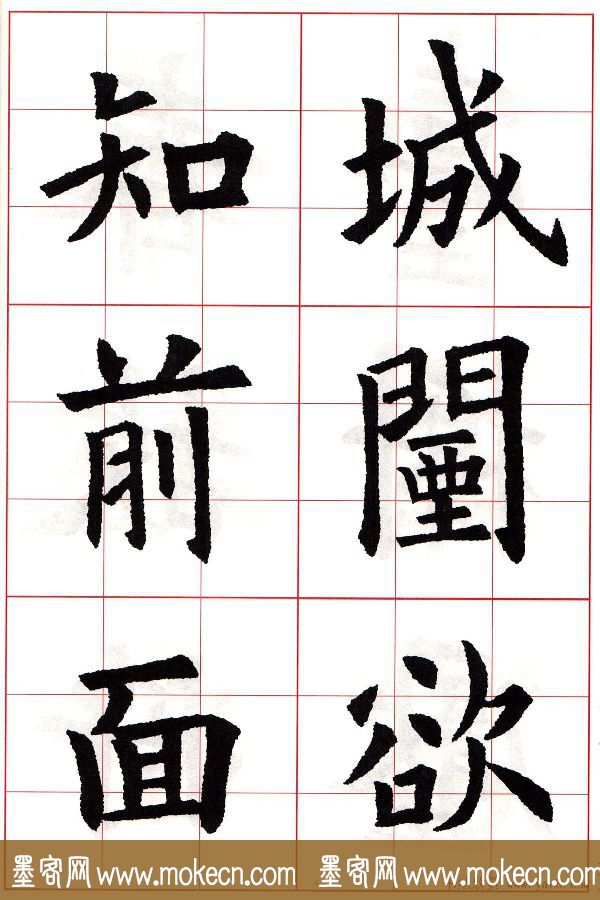 城闉欲
知前面
墨客网 www.mokecn.com 墨客网 www.mokecn.com